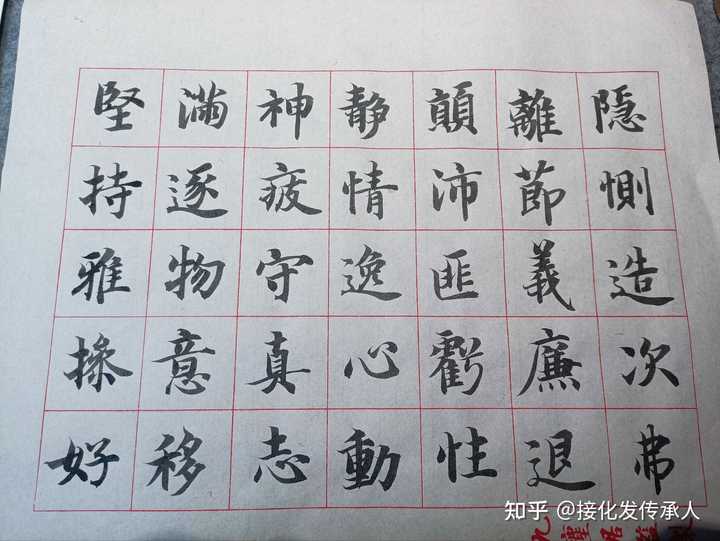 隱惻造次弗
離節義廉退
顛沛匪虧性
静情逸心動
神疲守真志
滿逐物意移
堅持雅操好
知乎 @接化发传承人